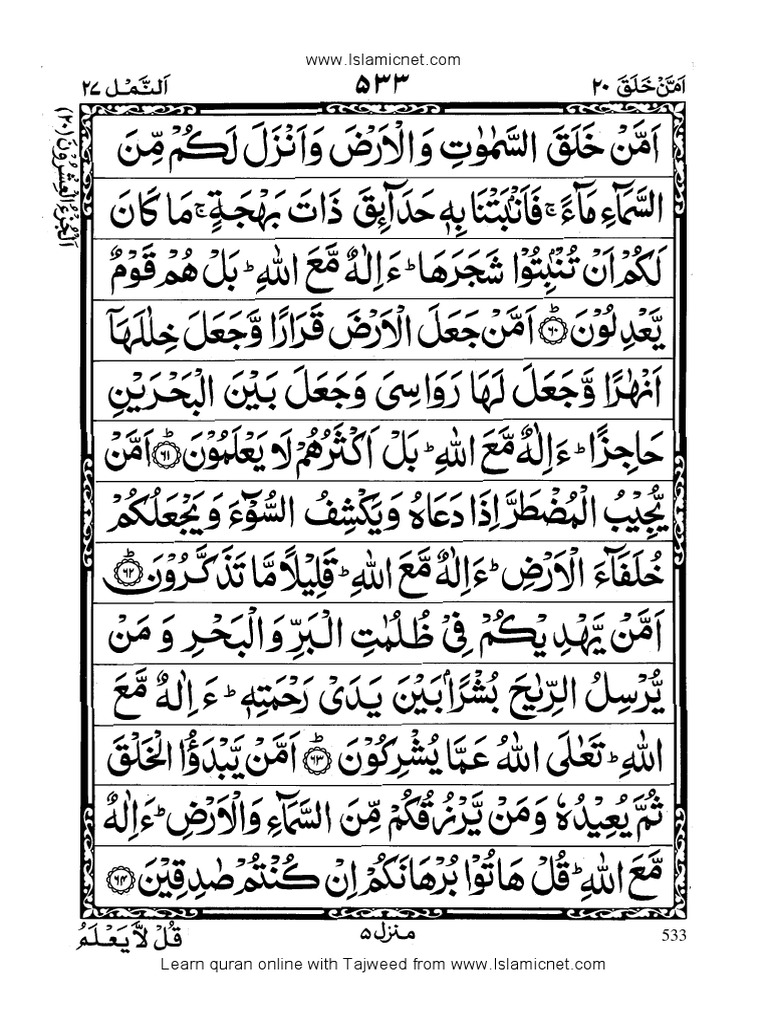 www.Islamicnet.com
اَمَّنْ خَلَقَ ٢٠
۵۳۳
اَلنَّمْل ٢٧
اَلْجُزْءُ الْعِشْرُوْنَ (٢٠)
اَمَّنْ خَلَقَ السَّمٰوٰتِ وَالْاَرْضَ وَاَنْزَلَ لَكُمْ مِّنَ
السَّمَآءِ مَآءً ۚ فَاَنْۢبَتْنَا بِهٖ حَدَآئِقَ ذَاتَ بَهْجَةٍ ۚ مَا كَانَ
لَكُمْ اَنْ تُنْۢبِتُوْا شَجَرَهَا ؕ ءَاِلٰهٌ مَّعَ اللّٰهِ ؕ بَلْ هُمْ قَوْمٌ
يَّعْدِلُوْنَ ؕ ﴿۶۰﴾ اَمَّنْ جَعَلَ الْاَرْضَ قَرَارًا وَّجَعَلَ خِلٰلَهَاۤ
اَنْهٰرًا وَّجَعَلَ لَهَا رَوَاسِىَ وَجَعَلَ بَيْنَ الْبَحْرَيْنِ
حَاجِزًا ؕ ءَاِلٰهٌ مَّعَ اللّٰهِ ؕ بَلْ اَكْثَرُهُمْ لَا يَعْلَمُوْنَ ؕ ﴿۶۱﴾ اَمَّنْ
يُّجِيْبُ الْمُضْطَرَّ اِذَا دَعَاهُ وَيَكْشِفُ السُّوْٓءَ وَيَجْعَلُكُمْ
خُلَفَآءَ الْاَرْضِ ؕ ءَاِلٰهٌ مَّعَ اللّٰهِ ؕ قَلِيْلًا مَّا تَذَكَّرُوْنَ ؕ ﴿۶۲﴾
اَمَّنْ يَّهْدِيْكُمْ فِىْ ظُلُمٰتِ الْبَرِّ وَالْبَحْرِ وَمَنْ
يُّرْسِلُ الرِّيٰحَ بُشْرًۢا بَيْنَ يَدَىْ رَحْمَتِهٖ ؕ ءَاِلٰهٌ مَّعَ
اللّٰهِ ؕ تَعٰلَى اللّٰهُ عَمَّا يُشْرِكُوْنَ ؕ ﴿۶۳﴾ اَمَّنْ يَّبْدَؤُا الْخَلْقَ
ثُمَّ يُعِيْدُهٗ وَمَنْ يَّرْزُقُكُمْ مِّنَ السَّمَآءِ وَالْاَرْضِ ؕ ءَاِلٰهٌ
مَّعَ اللّٰهِ ؕ قُلْ هَاتُوْا بُرْهَانَكُمْ اِنْ كُنْتُمْ صٰدِقِيْنَ ﴿۶۴﴾
533
منزل ۵
قُلْ لَّا يَعْلَمُ
Learn quran online with Tajweed from www.Islamicnet.com